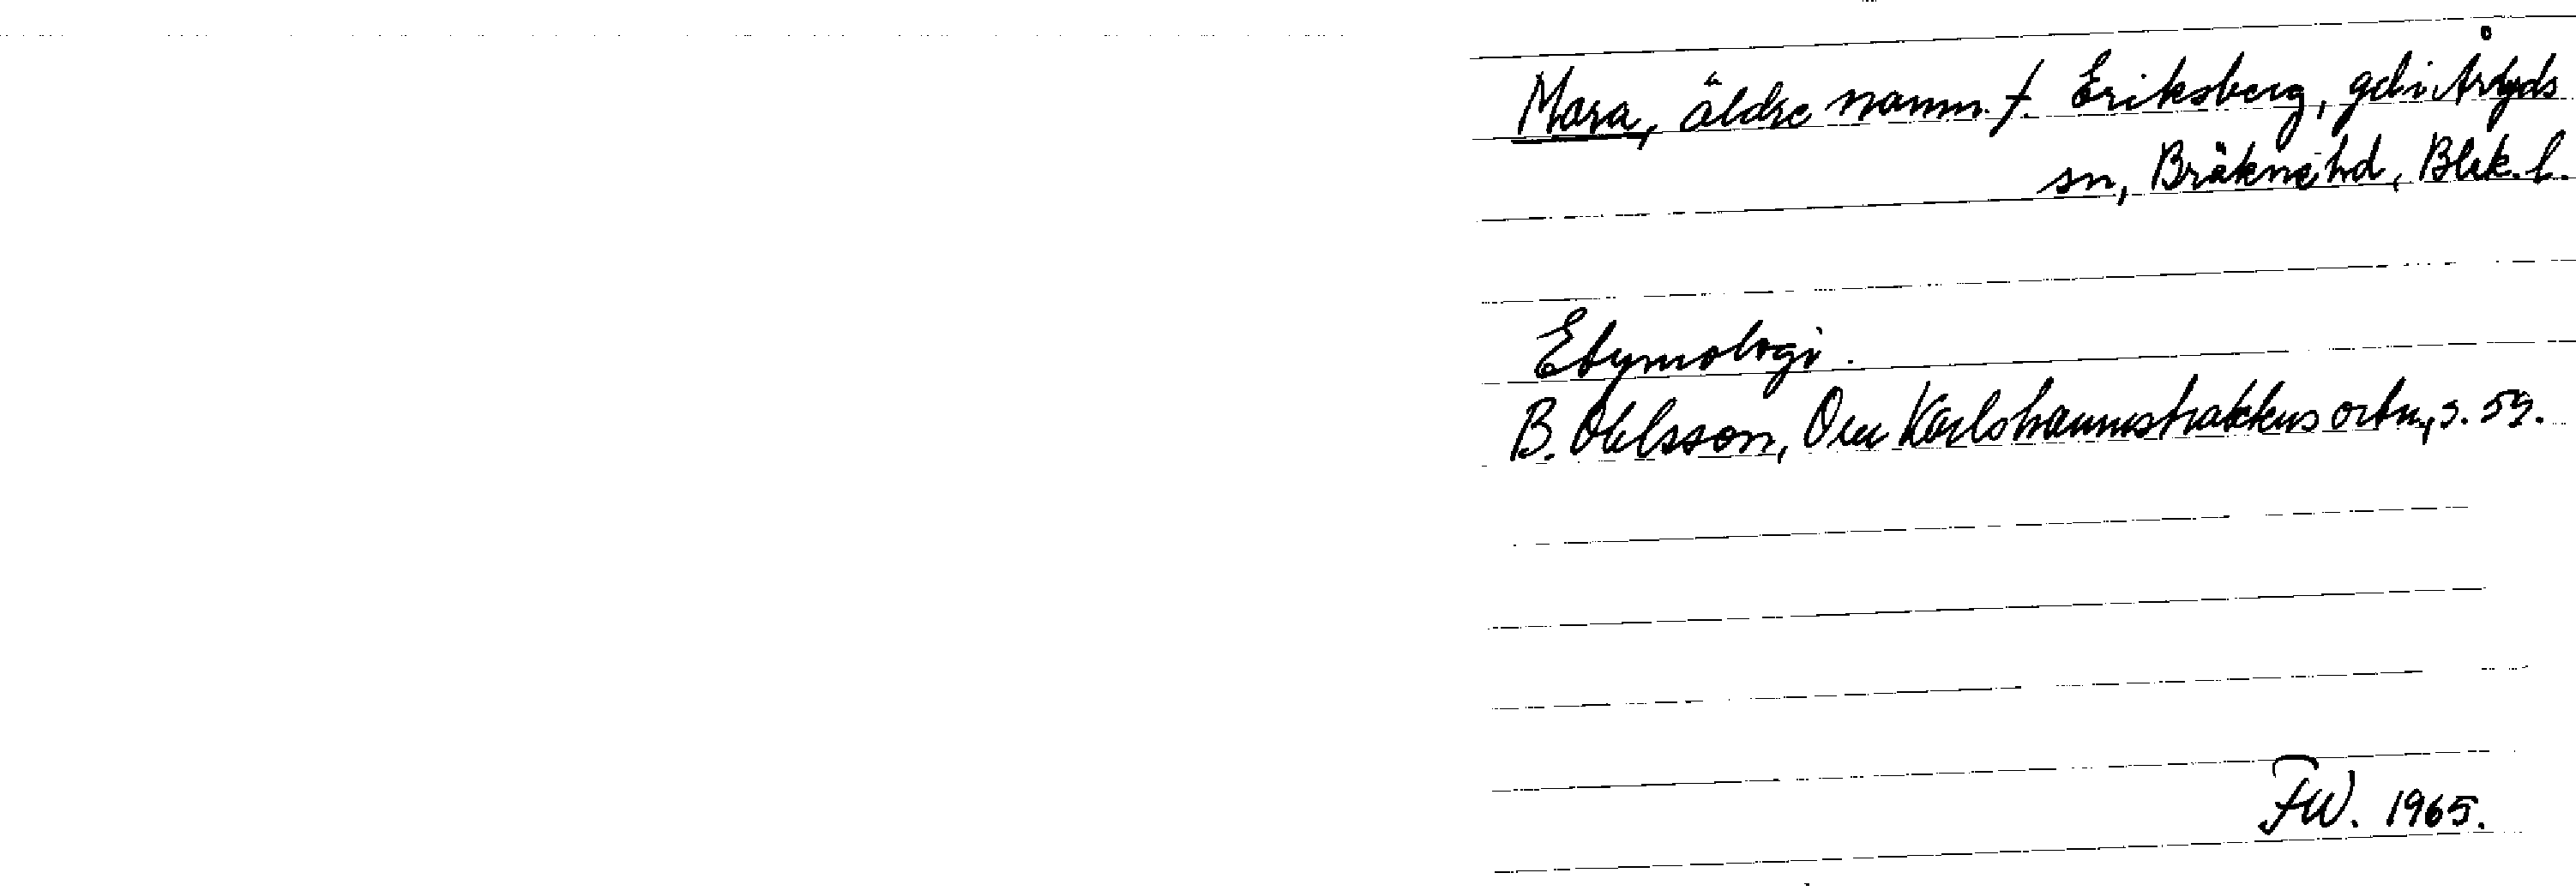 Mara, äldre namn f. Eriksberg, gd i Åryds
sn, Bräkne hd, Blek. l.
Etymologi.
B. Ohlsson, Om Karlshamnstraktens ortn, s. 59.
FW. 1965.